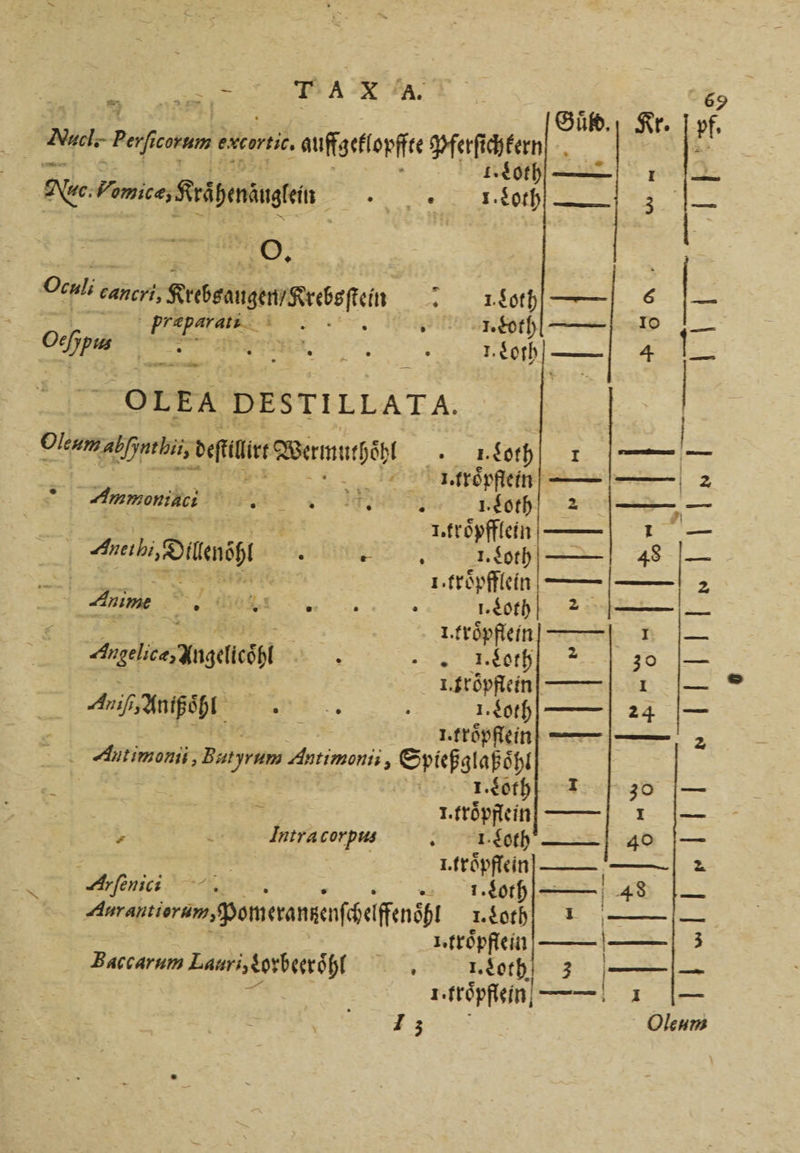 TAXA. 69
Güld. Kr. pf.
Nucl. Persicorum excortic. auffgeklopffte Pfersichkern
1.Loth — 1 —
Nuc. Vomicæ, Krähenäuglein . . 1.Loth — 3 —
O.
Oculi cancri, Krebsaugen/Krebsstein : 1.Loth — 6 —
præparati . . . 1.Loth — 10 —
Oesypus . . . . 1.Loth — 4 —
OLEA DESTILLATA.
Oleum absynthii, destillirt Wermuthöhl . 1.Loth 1 — —
1.tröpflein — — 2
Ammoniaci . . . . 1.Loth 2 — —
1.tröpfflein — 1 —
Anethi, Dillenöhl . . . 1.Loth — 48 —
1.tröpfflein — — 2
Anime . . . . . 1.Loth 2 — —
1.tröpflein — 1 —
Angelicæ, Angelicöhl . . . 1.Loth 2 30 —
1.tröpflein — 1 —
Anisi, Anißöhl . . . 1.Loth — 24 —
1.tröpflein — — 2
Antimonii, Butyrum Antimonii, Spießglaßöhl
1.Loth 1 30 —
1.tröpflein — 1 —
Intra corpus . 1.Loth — 40 —
1.tröpflein — — 2
Arsenici . . . . . 1.Loth — 48 —
Aurantiorum, Pomerantzenschelffenöhl 1.Loth 1 — —
1.tröpflein — — 3
Baccarum Lauri, Lorbeeröhl . 1.Loth. 3 — —
1.tröpflein — 1 —
I 3 Oleum